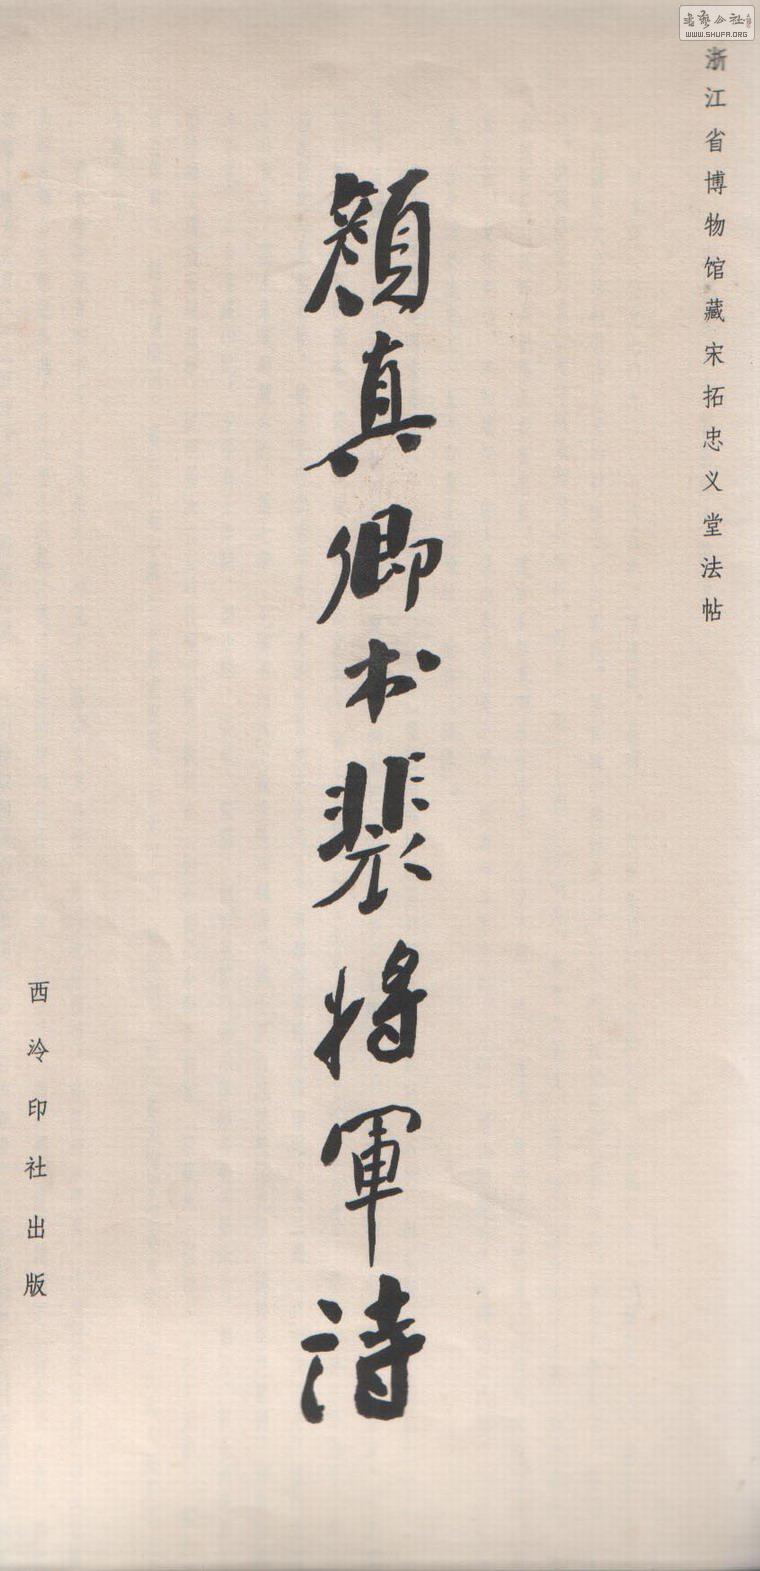 书艺公社
WWW.SHUFA.ORG
浙江省博物馆藏宋拓忠义堂法帖
颜真卿书裴将軍诗
西泠印社出版